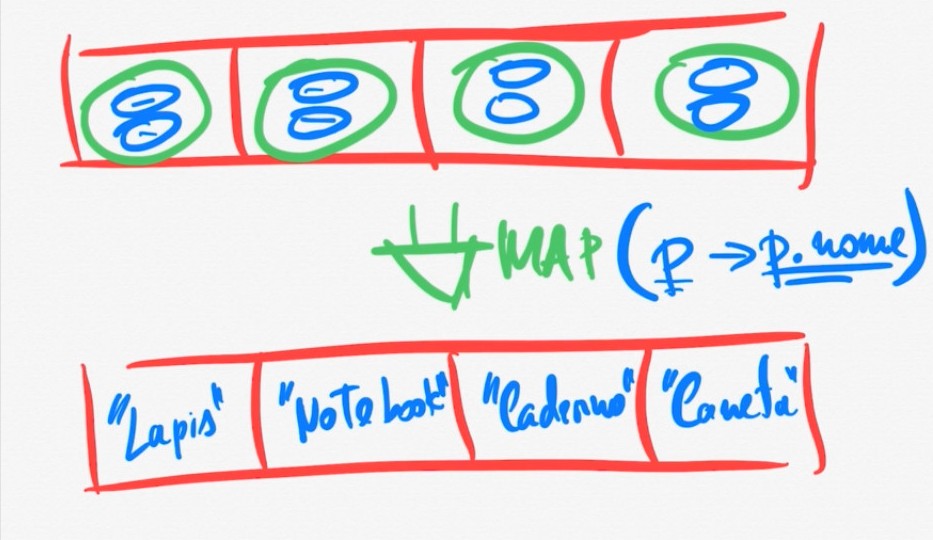 MAP (p → p.nome)
"Lapis" "Notebook" "Caderno" "Caneta"